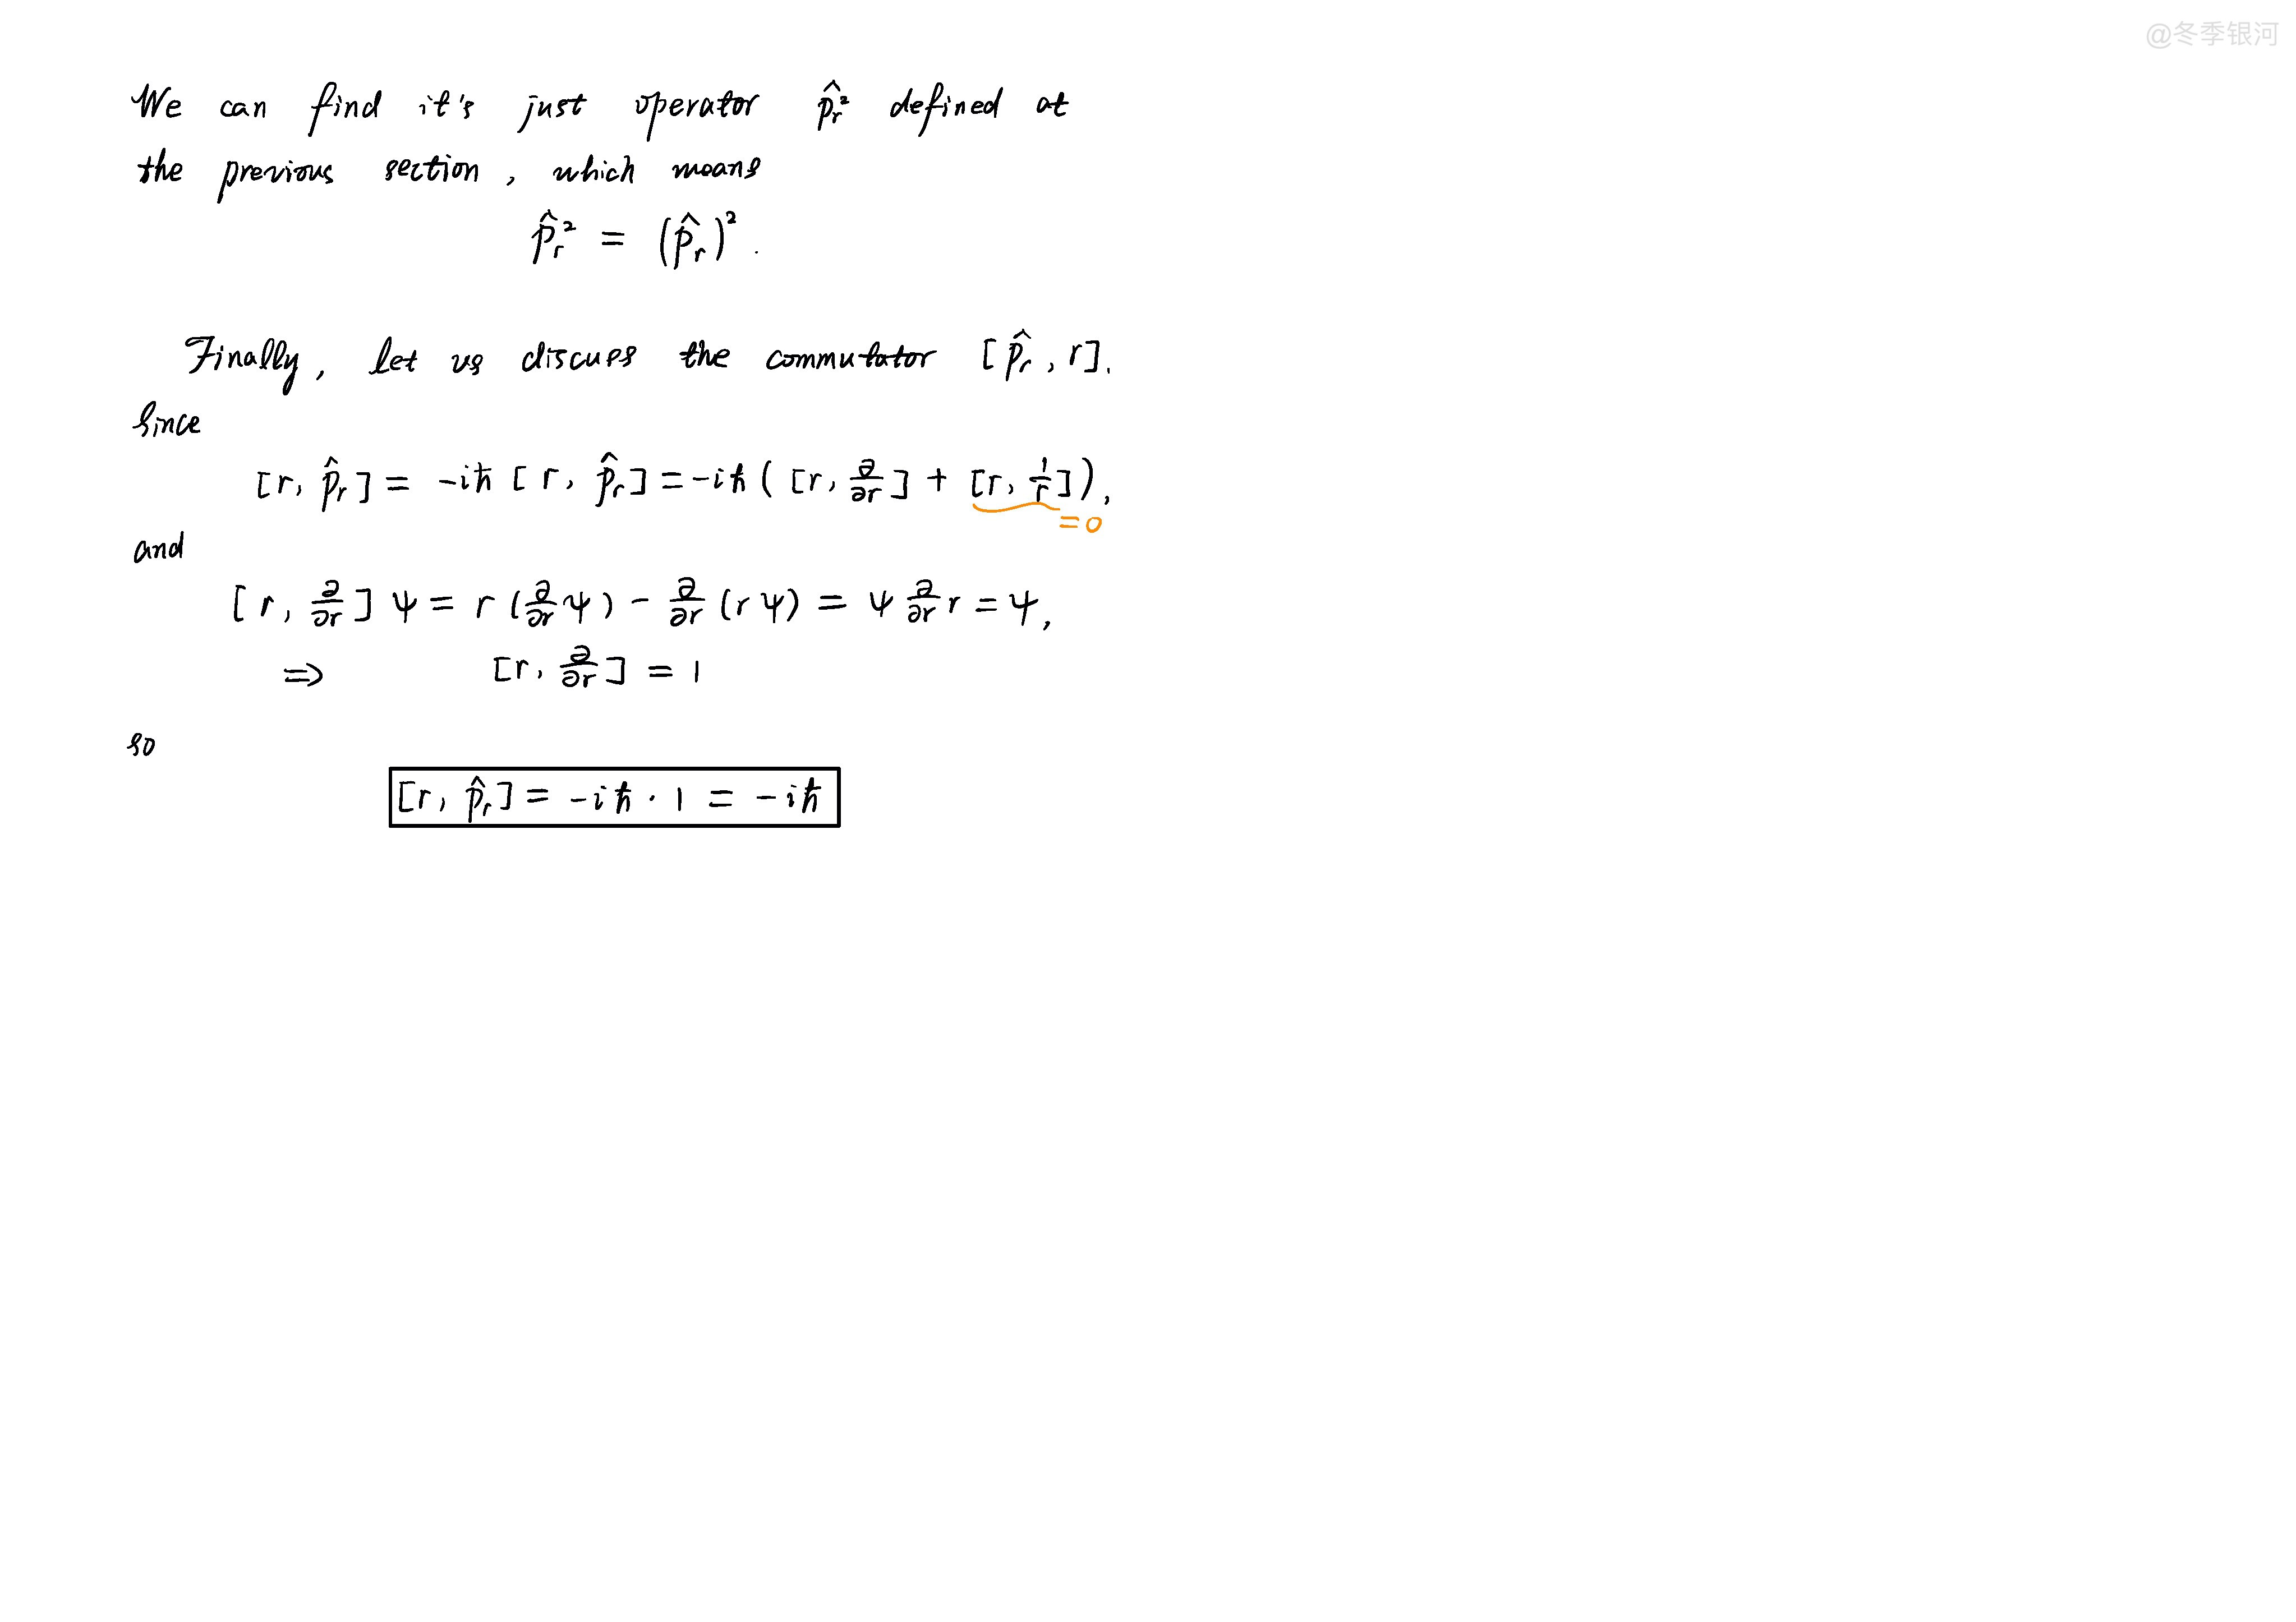 @冬季银河
We can find it's just operator p̂r² defined at
the previous section, which means
p̂r² = (p̂r)².
Finally, let us discuss the commutator [p̂r, r].
Since
[r, p̂r] = -iħ [r, p̂r] = -iħ ([r, ∂/∂r] + [r, 1/r]),
=0
and
[r, ∂/∂r] ψ = r (∂/∂r ψ) - ∂/∂r (r ψ) = ψ ∂/∂r r = ψ,
⇒ [r, ∂/∂r] = 1
so
[r, p̂r] = -iħ · 1 = -iħ